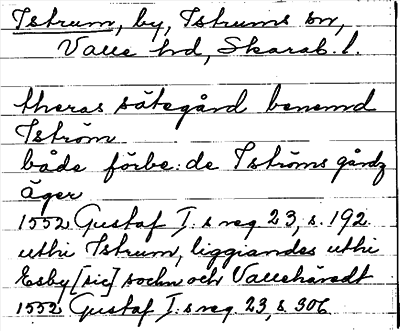 Istrum, by, Istrums sn,
Valle hd, Skarab. l.
theras sätegård benemd
Iström
både förbe: de Iströms gårdz
äger
1552 Gustaf I. s reg 23, s. 192.
uthi Istrum, liggiandes uthi
Esby [sic] sochn och Vallehäredt
1552 Gustaf I. s reg. 23, s. 306